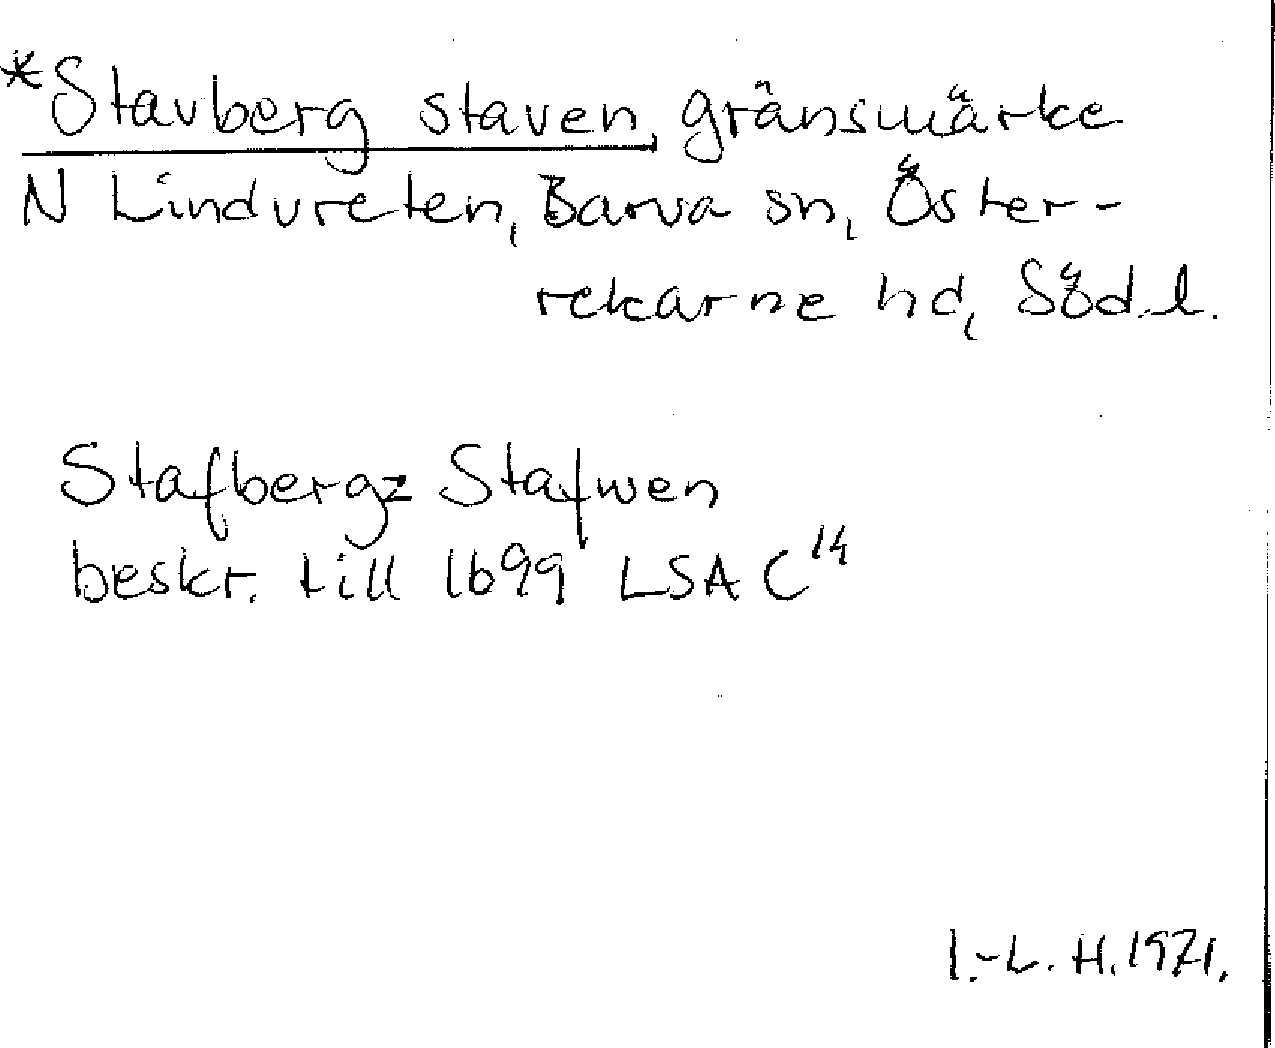 *Stavberg staven, gränsmärke
N Lindvreten, Barva sn, Öster-
rekarne hd, Söd.l.
Stafbergz Stafwen
beskr. till 1699 LSA C14
I.-L. H. 1971.